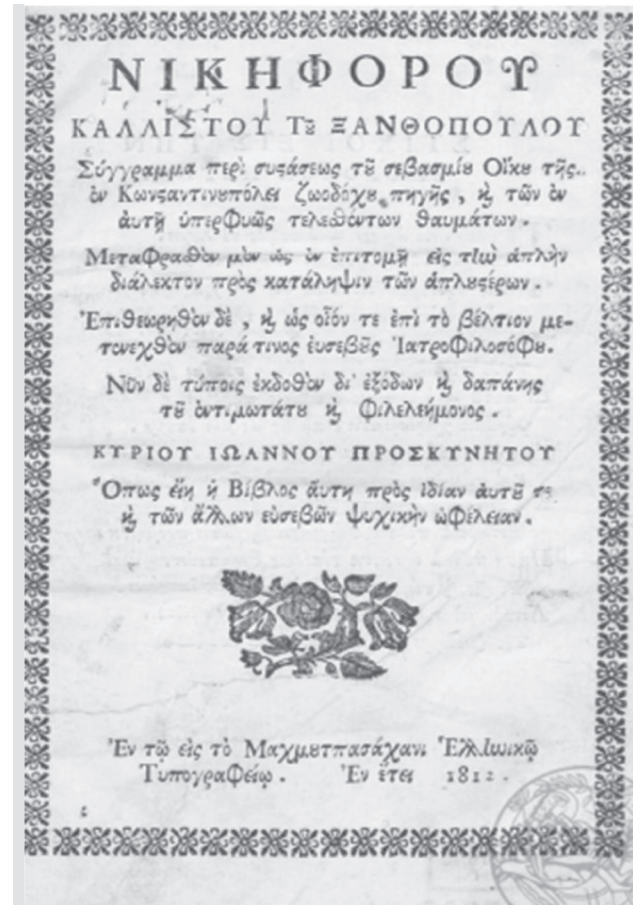 ΝΙΚΗΦΟΡΟΥ
ΚΑΛΛΙΣΤΟΥ Τȣ͂ ΞΑΝΘΟΠΟΥΛΟΥ
Σύγγραμμα περὶ συϛάσεως τȣ͂ σεβασμίȣ Οἴκȣ τῆς
ἐν Κωνϛαντινȣπόλει ζωοδόχȣ πηγῆς, ϗ τῶν ἐν
ἀυτῇ ὑπερφυῶς τελεθέντων θαυμάτων.
Μεταφραθὲν μὲν ὡς ἐν ἐπιτομῇ εἰς τὴν ἁπλῆν
διάλεκτον πρὸς κατάληψιν τῶν ἁπλȣϛέρων.
Ἐπιθεωρηθὲν δὲ, ϗ ὡς οἷόν τε ἐπὶ τὸ βέλτιον με-
τενεχθὲν παρά τινος ἐυσεβȣ͂ς Ἰατροφιλοσόφȣ.
Νῦν δὲ τύποις ἐκδοθὲν δι' ἐξόδων ϗ δαπάνης
τȣ͂ ἐντιμωτάτȣ ϗ Φιλελεήμονος.
ΚΥΡΙΟΥ ΙΩΑΝΝΟΥ ΠΡΟΣΚΥΝΗΤΟΥ
Ὅπως ἔιη ἡ Βίβλος ἅυτη πρὸς ἰδίαν ἀυτȣ͂ τε
ϗ τῶν ἄλλων ἐυσεβῶν ψυχικὴν ὠφέλειαν.
Ἐν τῷ εἰς τὸ Μαχμȣτπασάχανι Ἑλληνικῷ
Τυπογραφείῳ. Ἐν ἔτει 1812.